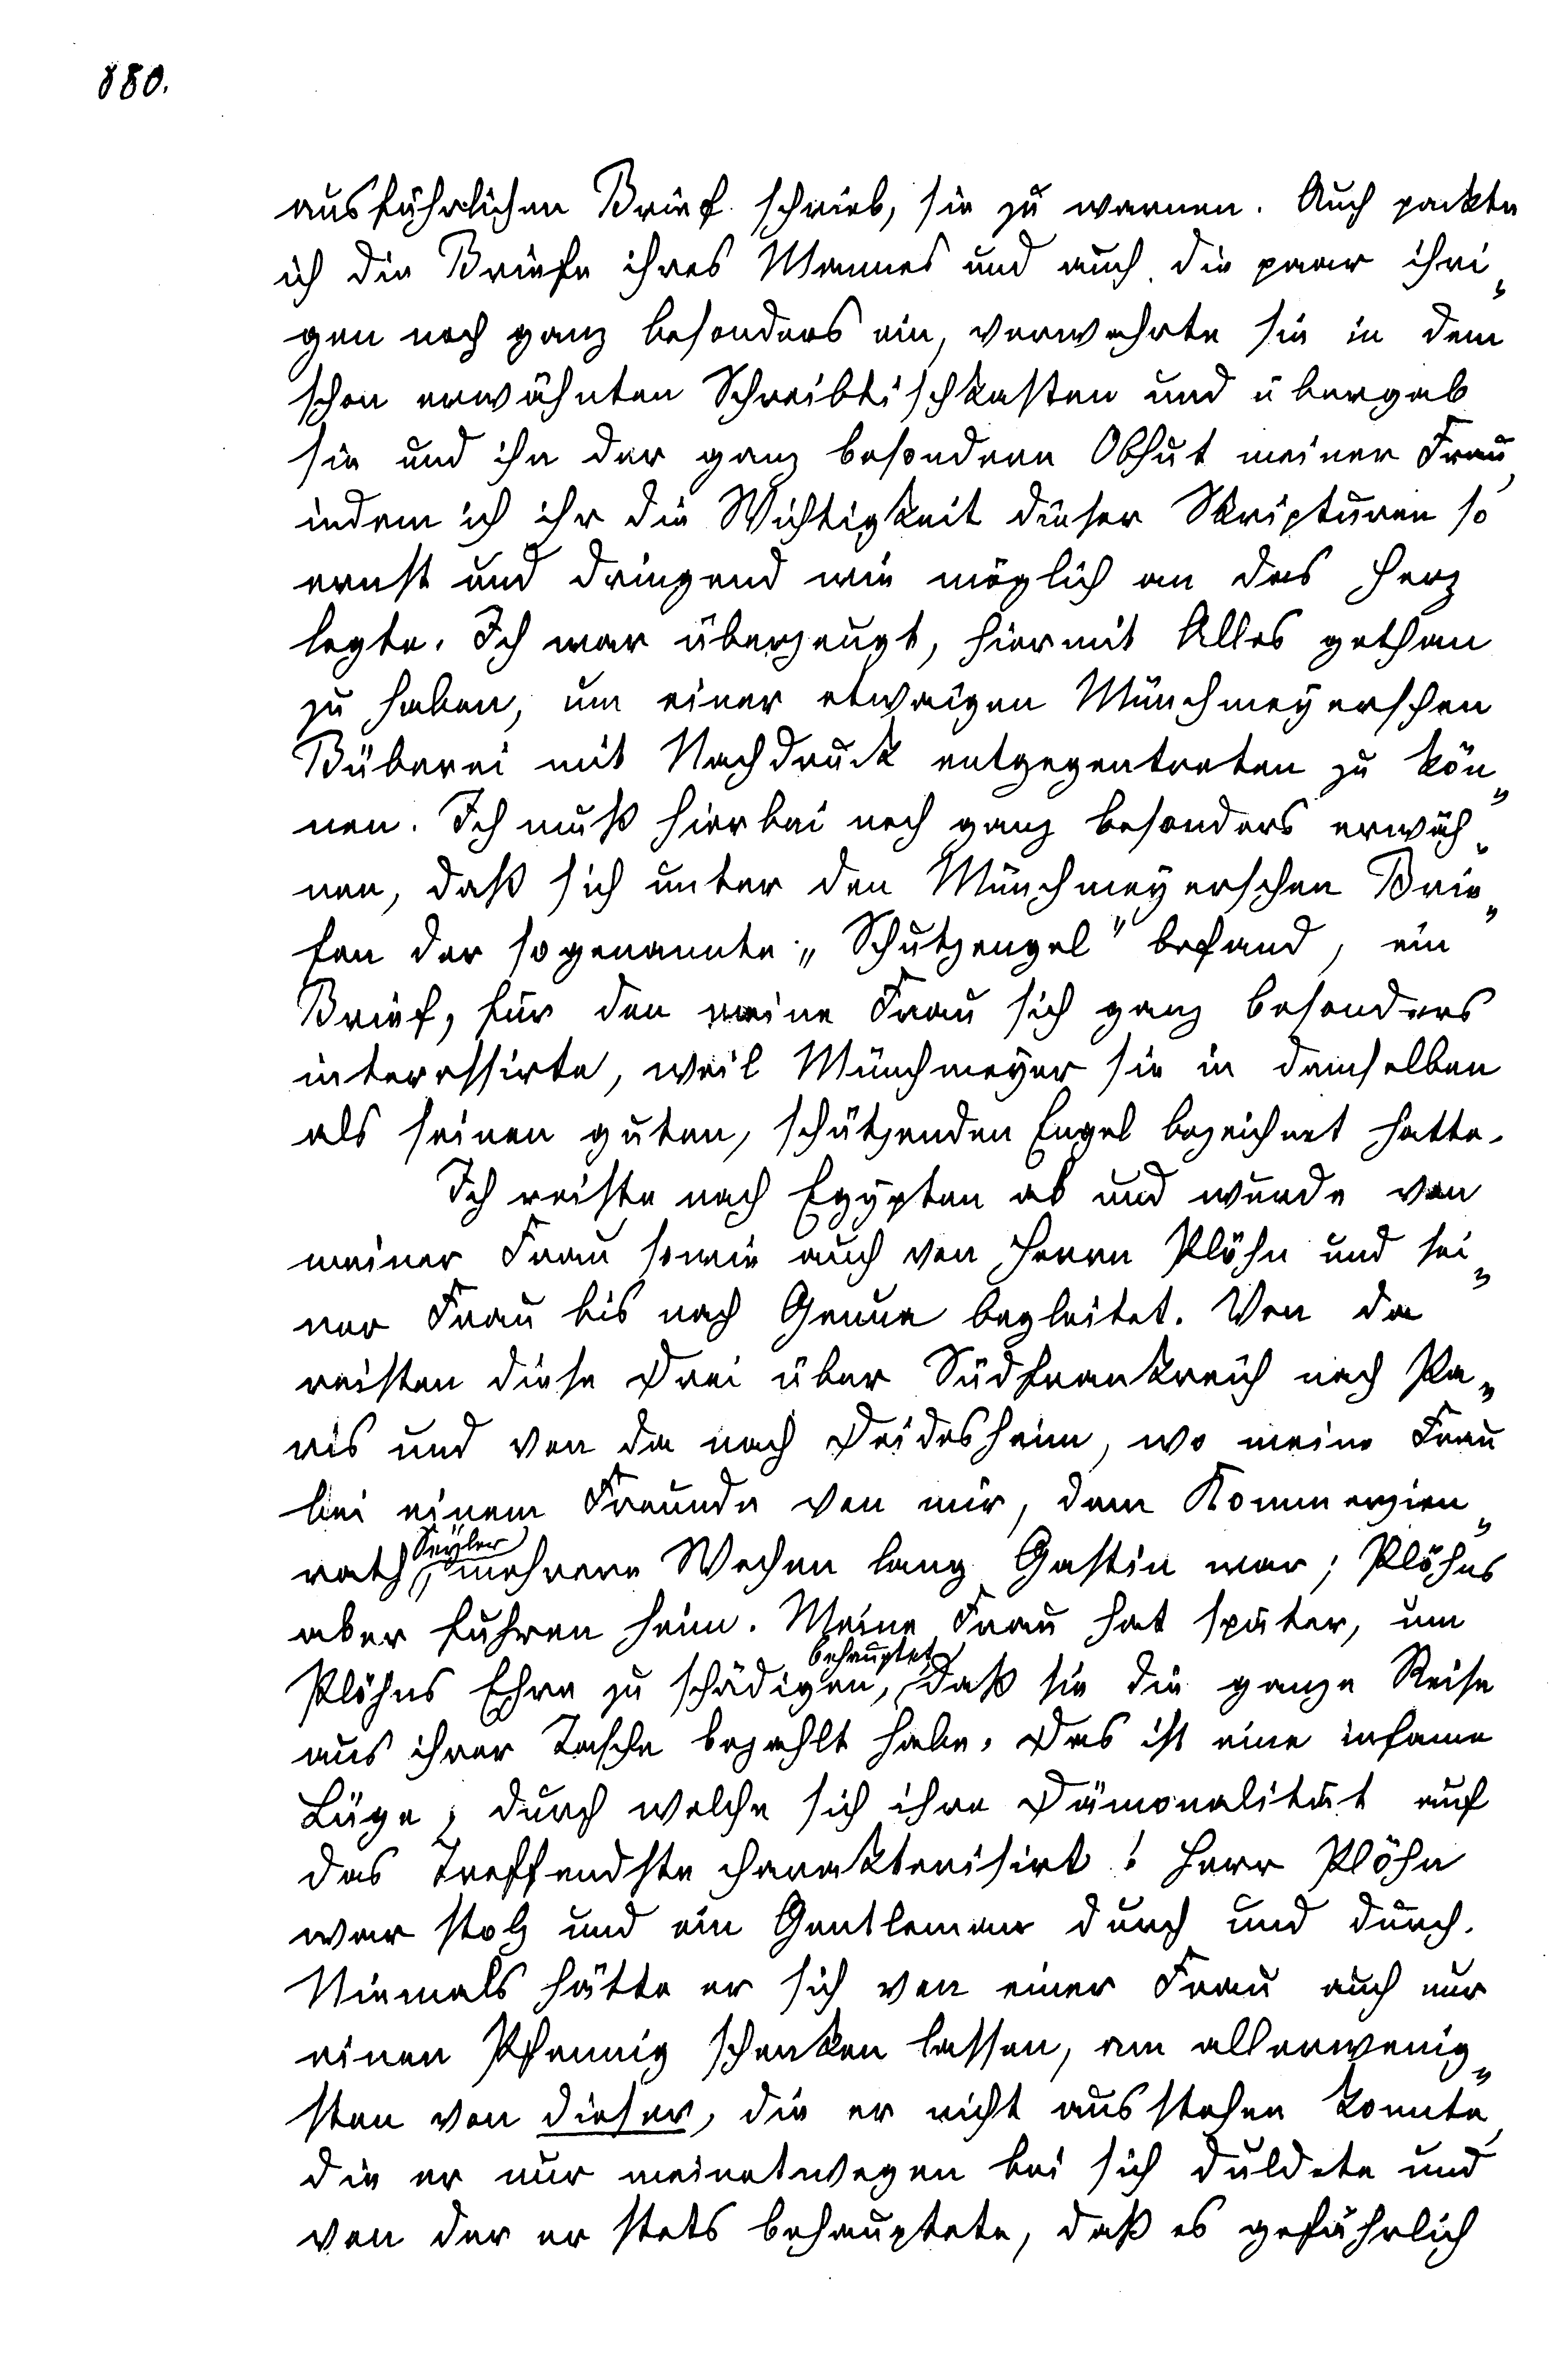 880.
ausführlichen Brief schrieb, sie zu warnen. Auch packte
ich die Briefe ihres Mannes und auch die paar ihri„
gen noch ganz besonders ein, verwahrte sie in dem
schon erwähnten Schreibtischkasten und übergab
sie und ihn der ganz besondern Obhut meiner Frau,
indem ich ihr die Wichtigkeit dieser Skripturen so
ernst und dringend wie möglich an das Herz
legte. Ich war überzeugt, hiermit Alles gethan
zu haben, um einer etwaigen Münchmeyerschen
Büberei mit Nachdruck entgegentreten zu kön„
nen. Ich muß hierbei noch ganz besonders erwäh„
nen, daß sich unter den Münchmeyerschen Brie„
fen der sogenannte „Schutzengel" befand, ein
Brief, für den meine Frau sich ganz besonders
interessirte, weil Münchmeyer sie in demselben
als seinen guten, schützenden Engel bezeichnet hatte.
Ich reiste nach Egypten ab und wurde von
meiner Frau sowie auch von Herrn Plöhn und sei„
ner Frau bis nach Genua begleitet. Von da
reisten diese Drei über Südfrankreich nach Pa„
ris und von da nach Deidesheim, wo meine Frau
bei einem Freunde von mir, dem Kommerzien„
rath Seyler, mehrere Wochen lang Gastin war; Plöhns
aber fuhren heim. Meine Frau hat später, um
Plöhns Ehre zu schädigen, behauptet, daß sie die ganze Reise
aus ihrer Tasche bezahlt habe. Das ist eine infame
Lüge, durch welche sich ihre Dämonalität auf
das Treffendste charakterisirt! Herr Plöhn
war stolz und ein Gentleman durch und durch.
Niemals hätte er sich von einer Frau auch nur
einen Pfennig schenken lassen, am allerwenig„
sten von dieser, die er nicht ausstehen konnte,
die er nur meinetwegen bei sich duldete und
von der er stets behauptete, daß es gefährlich